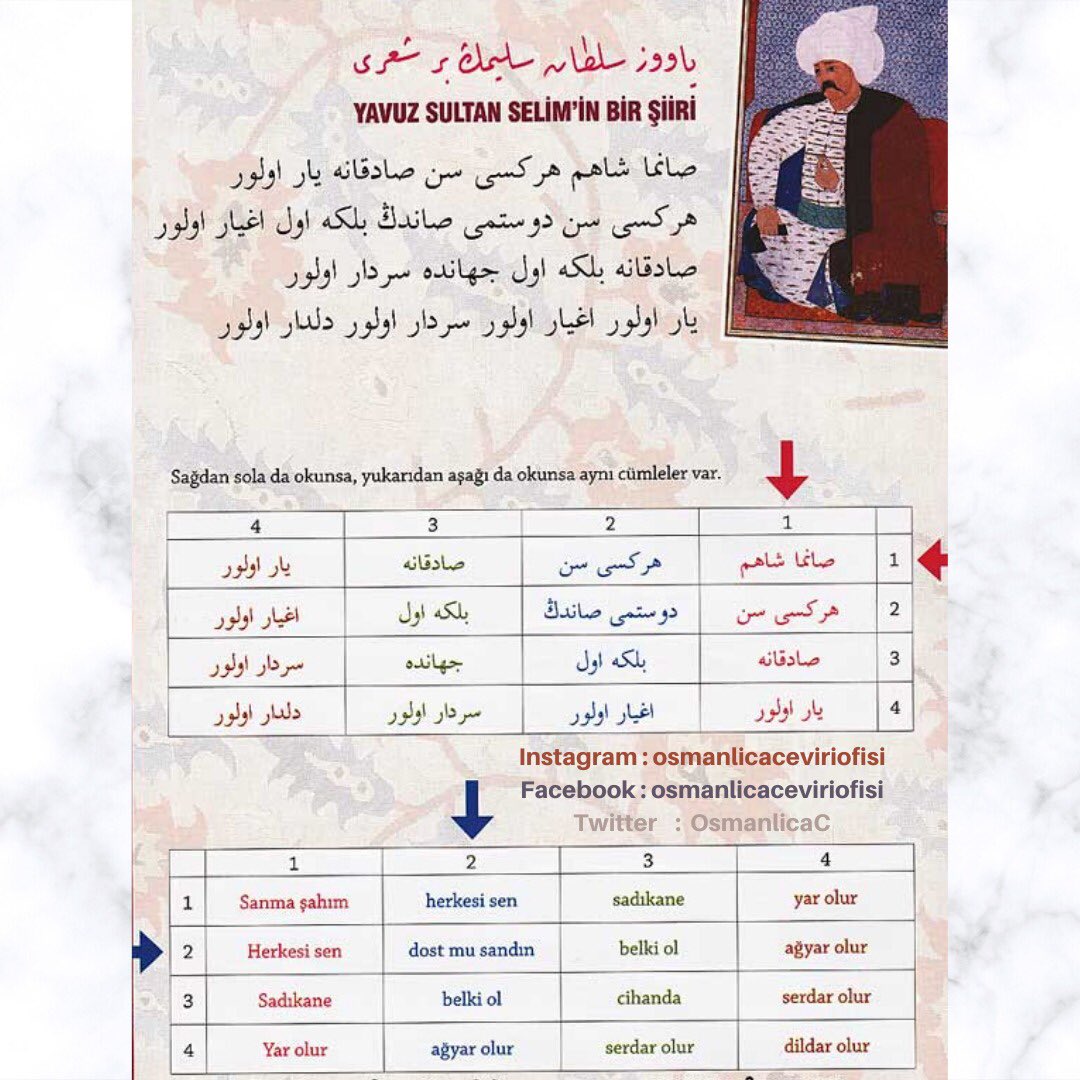 ياووز سلطان سليمڭ بر شعرى
YAVUZ SULTAN SELİM'İN BİR ŞİİRİ
صانما شاهم هركسى سن صادقانه يار اولور
هركسى سن دوستمى صاندڭ بلكه اول اغيار اولور
صادقانه بلكه اول جهانده سردار اولور
يار اولور اغيار اولور سردار اولور دلدار اولور
Sağdan sola da okunsa, yukarıdan aşağı da okunsa aynı cümleler var.
4 3 2 1
1 صانما شاهم هركسى سن صادقانه يار اولور
2 هركسى سن دوستمى صاندڭ بلكه اول اغيار اولور
3 صادقانه بلكه اول جهانده سردار اولور
4 يار اولور اغيار اولور سردار اولور دلدار اولور
Instagram : osmanlicaceviriofisi
Facebook : osmanlicaceviriofisi
Twitter : OsmanlicaC
1 2 3 4
1 Sanma şahım herkesi sen sadıkane yar olur
2 Herkesi sen dost mu sandın belki ol ağyar olur
3 Sadıkane belki ol cihanda serdar olur
4 Yar olur ağyar olur serdar olur dildar olur